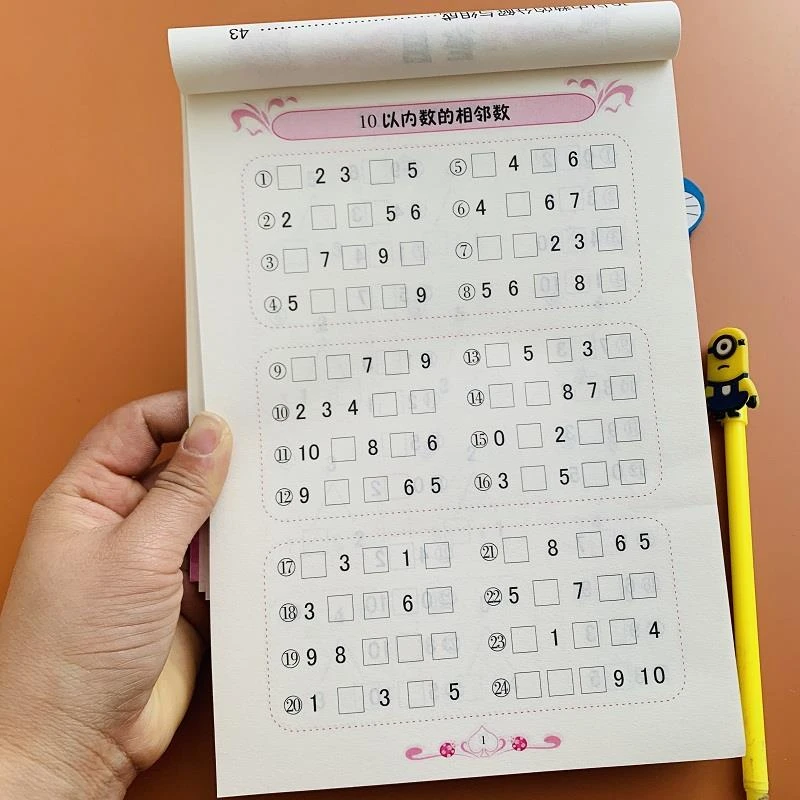 43
10 以内数的相邻数
① □ 2 3 □ 5 ⑤ □ 4 □ 6 □
② 2 □ □ 5 6 ⑥ 4 □ 6 7 □
③ □ 7 □ 9 □ ⑦ □ □ 2 3 □
④ 5 □ □ □ 9 ⑧ 5 6 □ 8 □
⑨ □ □ 7 □ 9 ⑬ □ 5 □ 3 □
⑩ 2 3 4 □ □ ⑭ □ □ 8 7 □
⑪ 10 □ 8 □ 6 ⑮ 0 □ 2 □ □
⑫ 9 □ □ 6 5 ⑯ 3 □ 5 □ □
⑰ □ 3 □ 1 □ ㉑ □ 8 □ 6 5
⑱ 3 □ □ 6 □ ㉒ 5 □ 7 □ □
⑲ 9 8 □ □ □ ㉓ □ 1 □ □ 4
⑳ 1 □ 3 □ 5 ㉔ □ □ □ 9 10
1